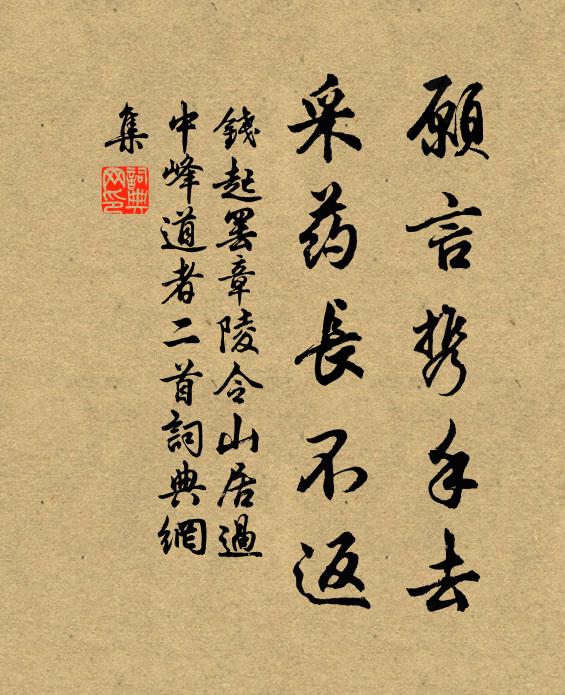 願言携手去
采药長不返
錢起罢章陵令山居過
中峰道者二首詞典網
集
詞典
网印